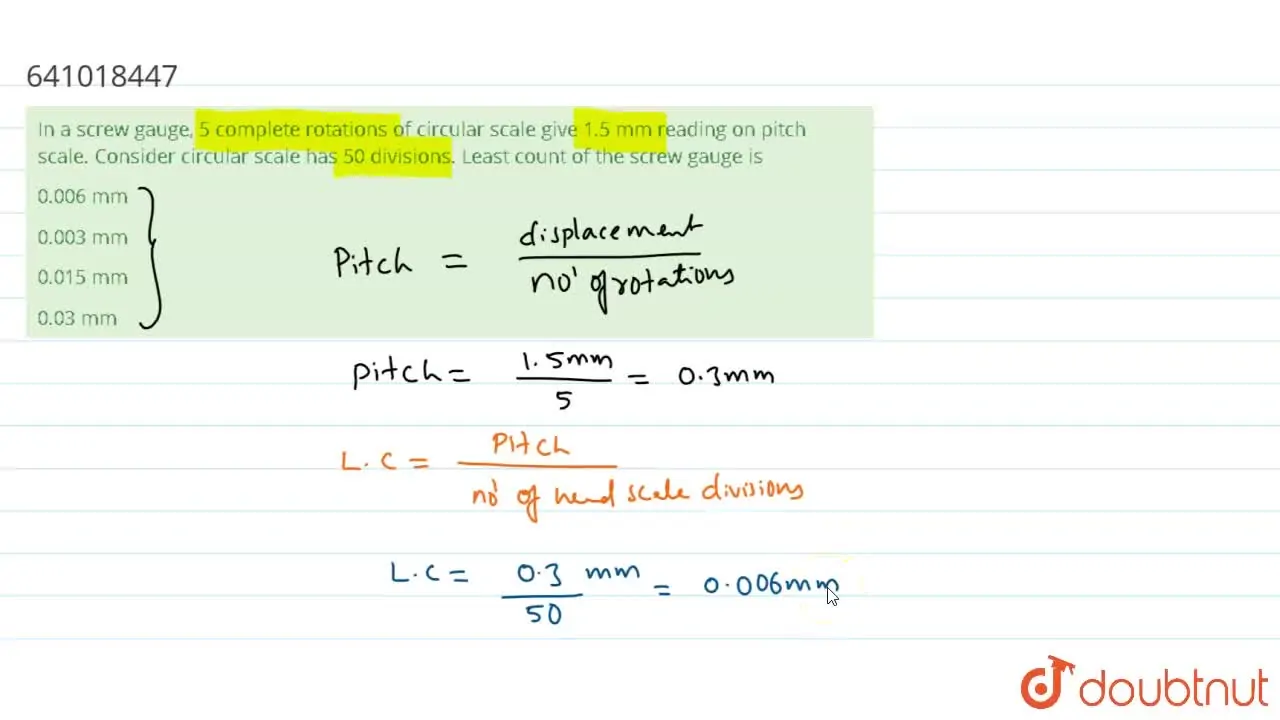 641018447
In a screw gauge, 5 complete rotations of circular scale give 1.5 mm reading on pitch
scale. Consider circular scale has 50 divisions. Least count of the screw gauge is
0.006 mm
0.003 mm
0.015 mm
0.03 mm
Pitch = displacement / no' of rotations
Pitch = 1.5mm / 5 = 0.3mm
L.C = Pitch / no' of head scale divisions
L.C = 0.3 mm / 50 = 0.006mm
doubtnut